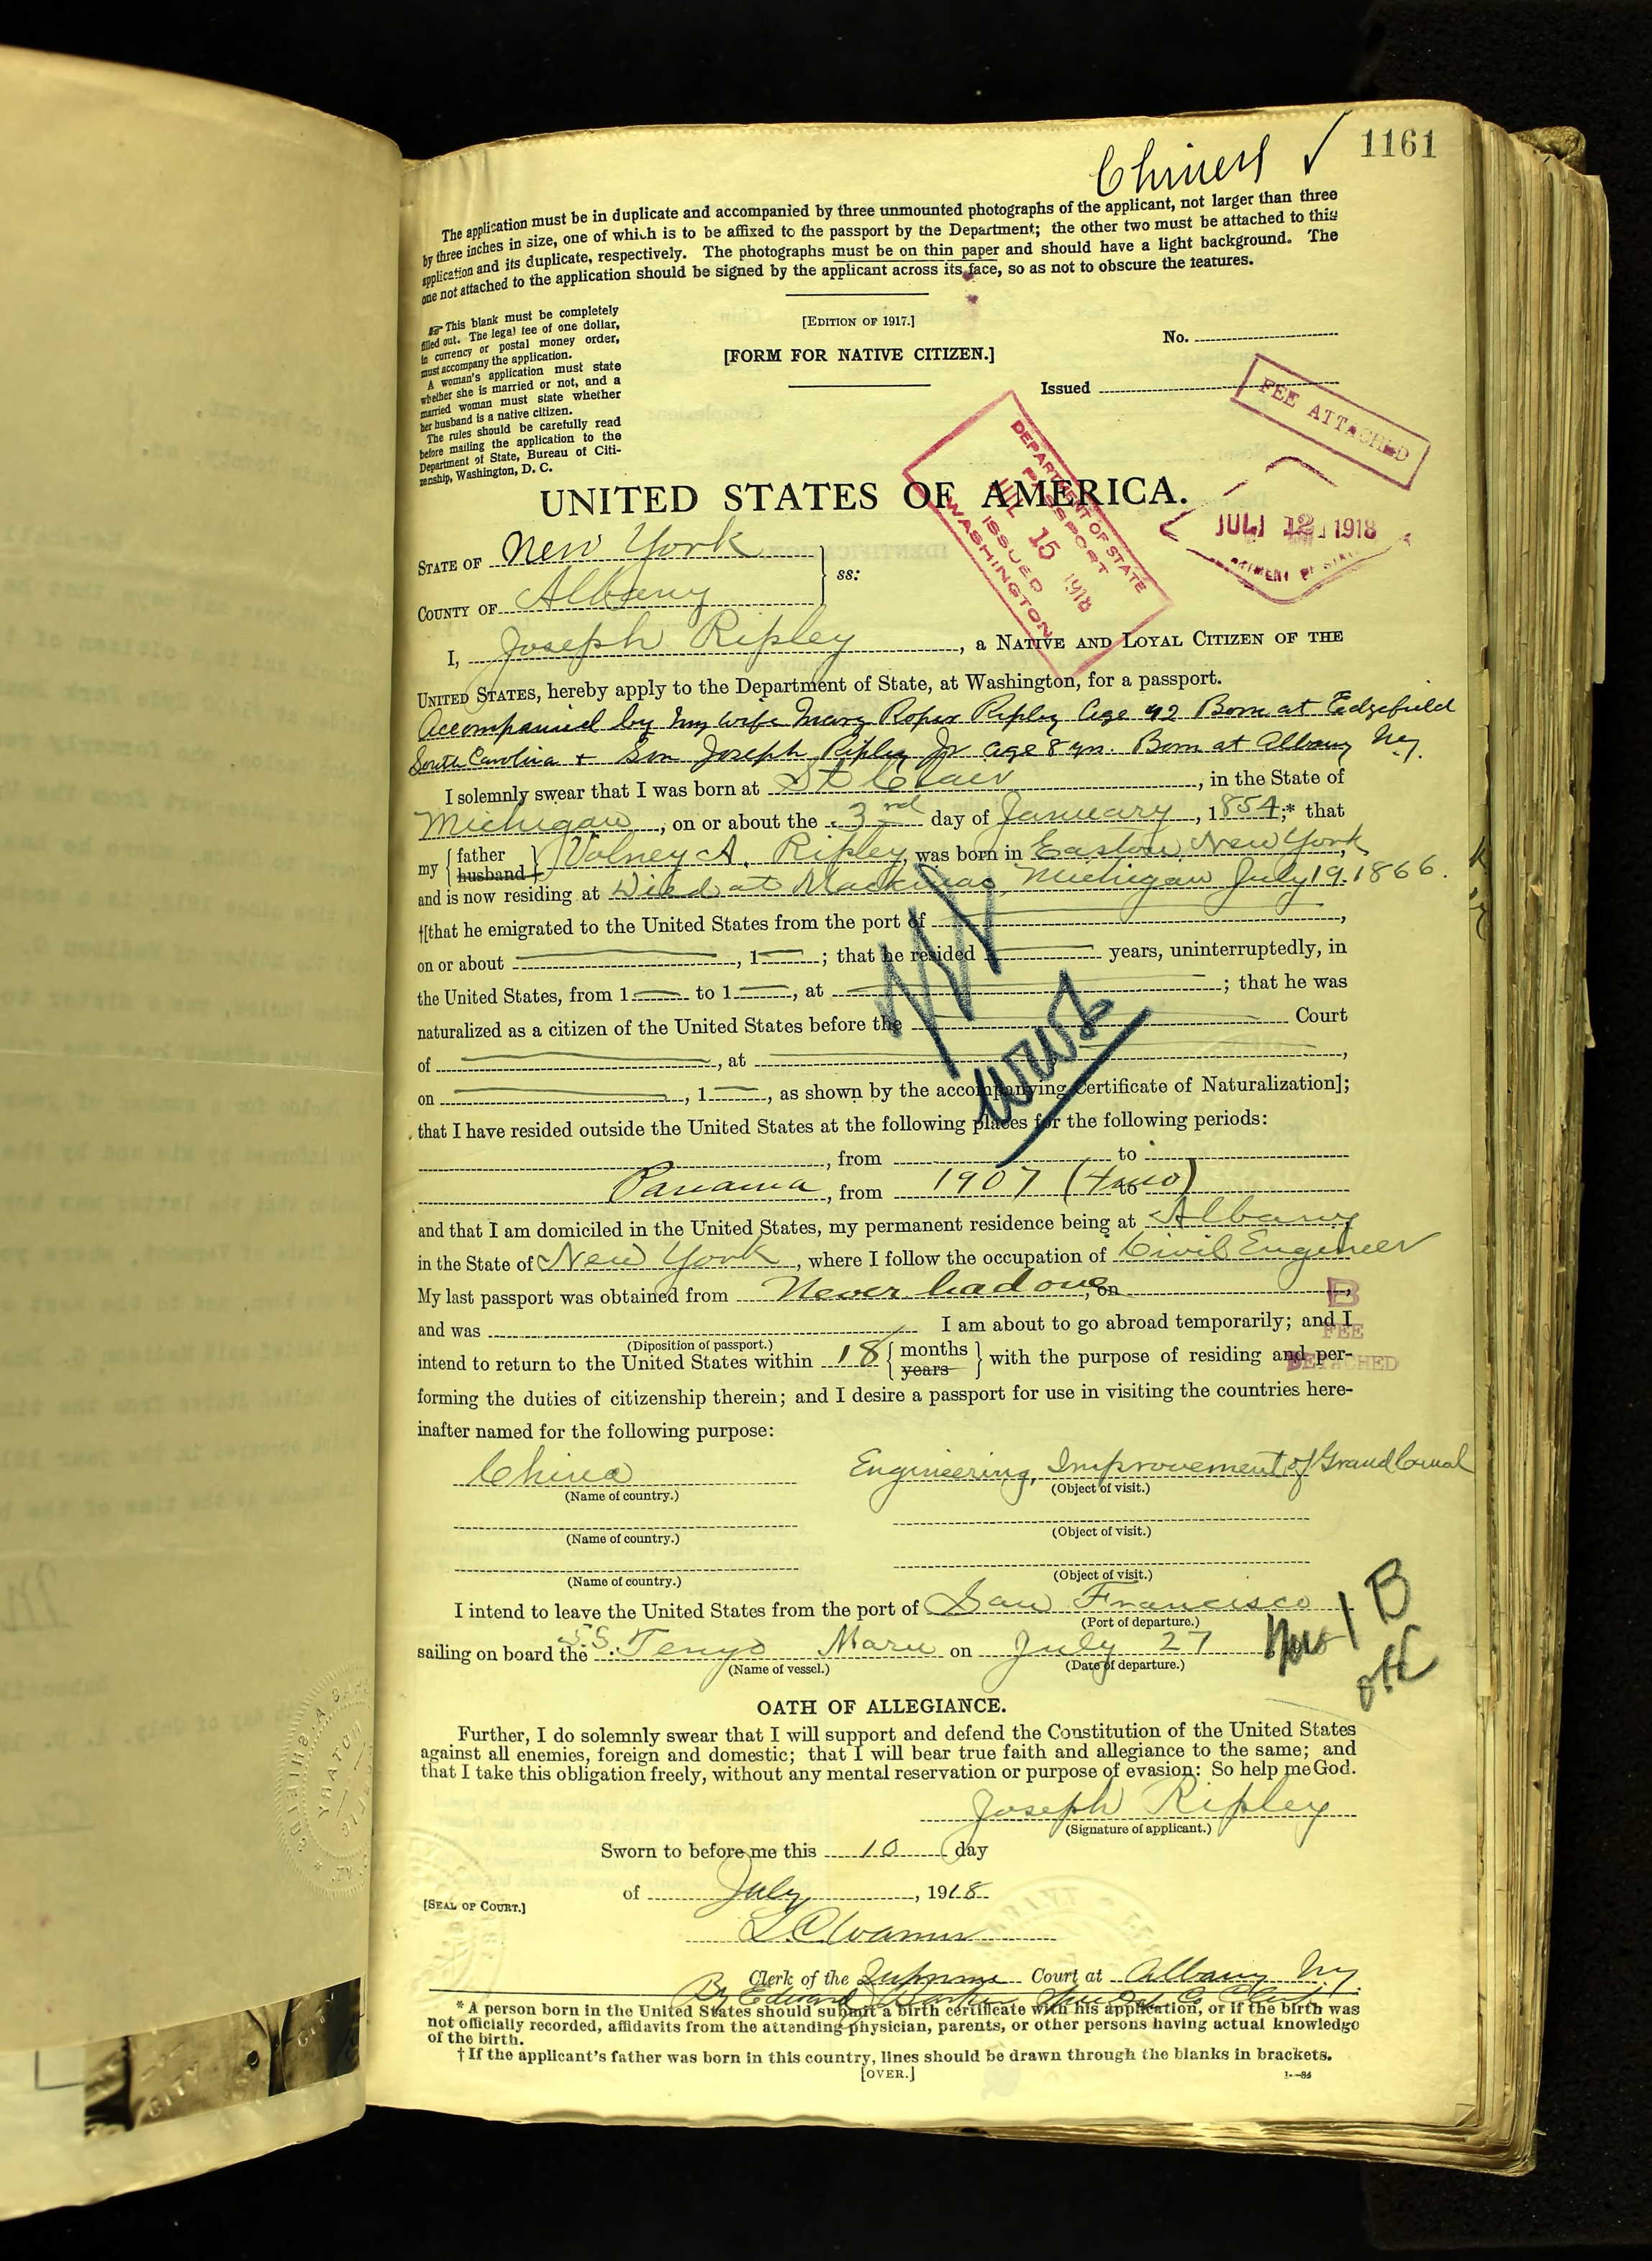 1161
The application must be in duplicate and accompanied by three unmounted photographs of the applicant, not larger than three
by three inches in size, one of which is to be affixed to the passport by the Department; the other two must be attached to this
application and its duplicate, respectively. The photographs must be on thin paper and should have a light background. The
one not attached to the application should be signed by the applicant across its face, so as not to obscure the features.
This blank must be completely
filled out. The legal fee of one dollar,
in currency or postal money order,
must accompany the application.
A woman's application must state
whether she is married or not, and a
married woman must state whether
her husband is a native citizen.
The rules should be carefully read
before mailing the application to the
Department of State, Bureau of Citi-
zenship, Washington, D. C.
[EDITION OF 1917.]
[FORM FOR NATIVE CITIZEN.]
No.
Issued
FEE ATTACHED
DEPARTMENT OF STATE
PASSPORT
JUL 15 1918
ISSUED
WASHINGTON
JUL 12 1918
UNITED STATES OF AMERICA.
STATE OF New York
COUNTY OF Albany
ss:
I, Joseph Ripley, a NATIVE AND LOYAL CITIZEN OF THE
UNITED STATES, hereby apply to the Department of State, at Washington, for a passport.
Accompanied by my wife Mary Roper Ripley Age 42 Born at Edgefield
South Carolina + Son Joseph Ripley Jr age 8 yrs. Born at Albany Ny.
I solemnly swear that I was born at St Clair, in the State of
Michigan, on or about the 3rd day of January, 1854;* that
my { father husband } Volney A. Ripley, was born in Easton, New York,
and is now residing at Died at Mackinac, Michigan July 19. 1866.
†[that he emigrated to the United States from the port of
on or about , 1 ; that he resided years, uninterruptedly, in
the United States, from 1 to 1 , at ; that he was
naturalized as a citizen of the United States before the Court
of , at ,
on , 1 , as shown by the accompanying Certificate of Naturalization];
that I have resided outside the United States at the following places for the following periods:
, from to
Panama, from 1907 to
and that I am domiciled in the United States, my permanent residence being at Albany
in the State of New York, where I follow the occupation of Civil Engineer
My last passport was obtained from Never had one, on ,
and was I am about to go abroad temporarily; and I
(Diposition of passport.)
B
FEE
DETACHED
intend to return to the United States within 18 { months years } with the purpose of residing and per-
forming the duties of citizenship therein; and I desire a passport for use in visiting the countries here-
inafter named for the following purpose:
China Engineering, Improvement of Grand Canal
(Name of country.) (Object of visit.)
(Name of country.) (Object of visit.)
(Name of country.) (Object of visit.)
I intend to leave the United States from the port of San Francisco
(Port of departure.)
sailing on board the SS. Tenyo Maru on July 27
(Name of vessel.) (Date of departure.)
B
OATH OF ALLEGIANCE.
Further, I do solemnly swear that I will support and defend the Constitution of the United States
against all enemies, foreign and domestic; that I will bear true faith and allegiance to the same; and
that I take this obligation freely, without any mental reservation or purpose of evasion: So help me God.
Joseph Ripley
(Signature of applicant.)
Sworn to before me this 10 day
of July, 1918.
[SEAL OF COURT.]
L. C. Warner
Clerk of the Supreme Court at Albany Ny.
By Edward
* A person born in the United States should submit a birth certificate with his application, or if the birth was
not officially recorded, affidavits from the attending physician, parents, or other persons having actual knowledge
of the birth.
† If the applicant's father was born in this country, lines should be drawn through the blanks in brackets.
[OVER.]
1--84